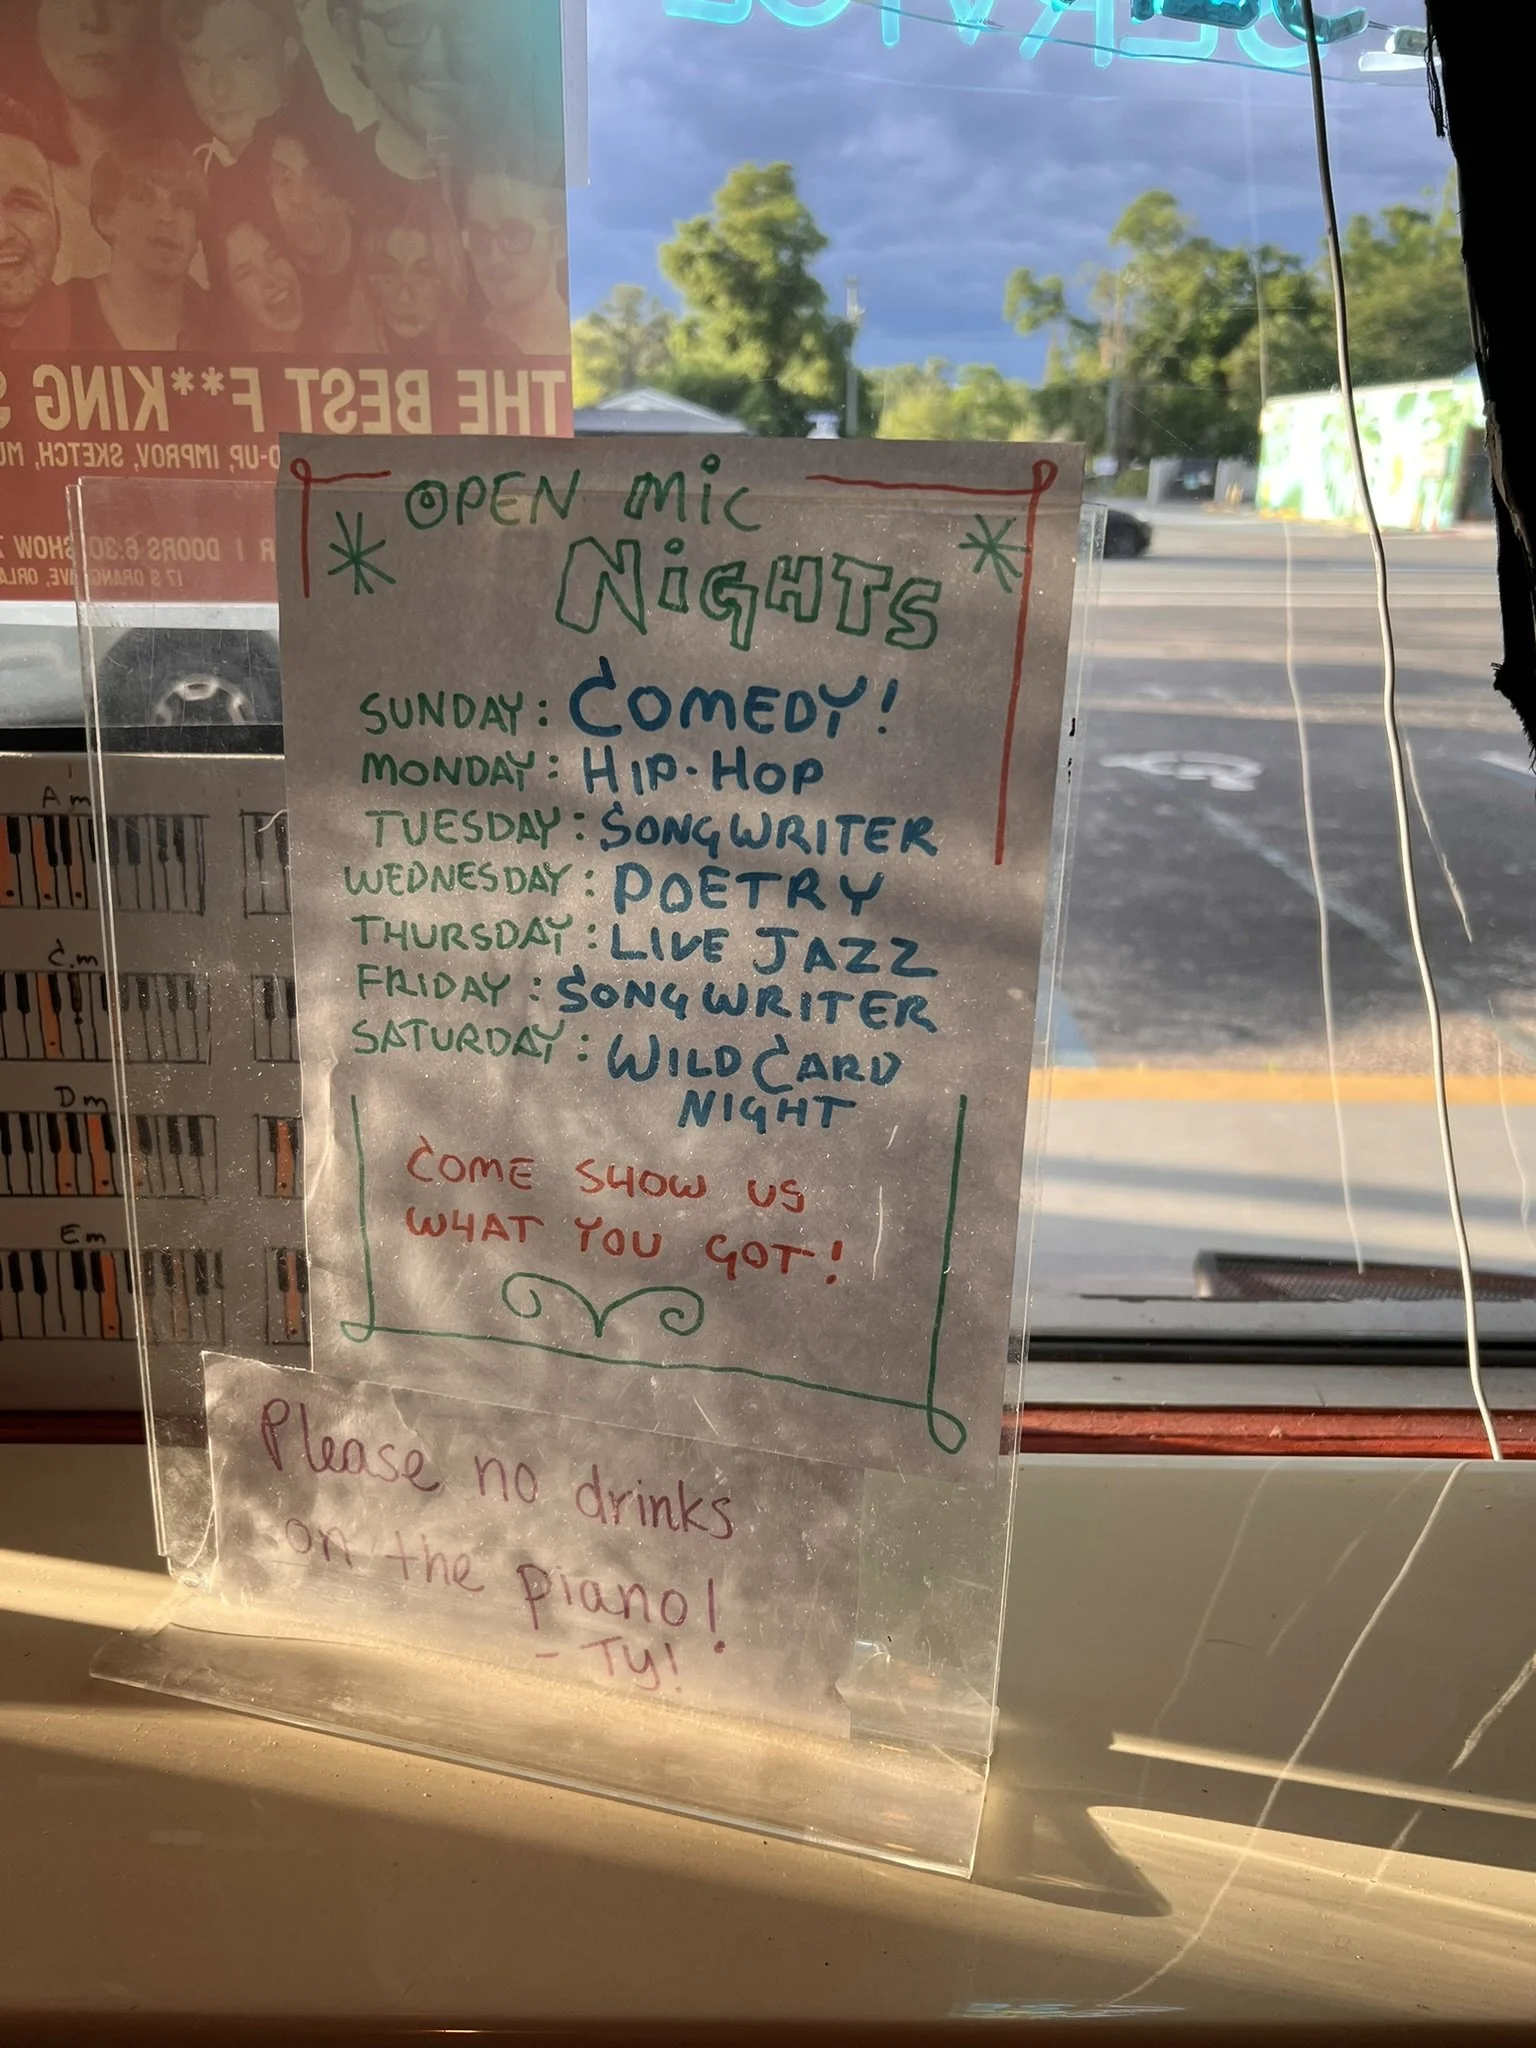 SERVICE
THE BEST F**KING S
D-UP, IMPROV, SKETCH, MU
R | DOORS 6:30 SHOW 7
17 S ORANGE AVE, ORLA
OPEN MIC
NIGHTS
SUNDAY: COMEDY!
MONDAY: HIP-HOP
TUESDAY: SONGWRITER
WEDNESDAY: POETRY
THURSDAY: LIVE JAZZ
FRIDAY: SONGWRITER
SATURDAY: WILD CARD
NIGHT
COME SHOW US
WHAT YOU GOT!
Am
Cm
Dm
Em
Please no drinks
on the piano!
- Ty!